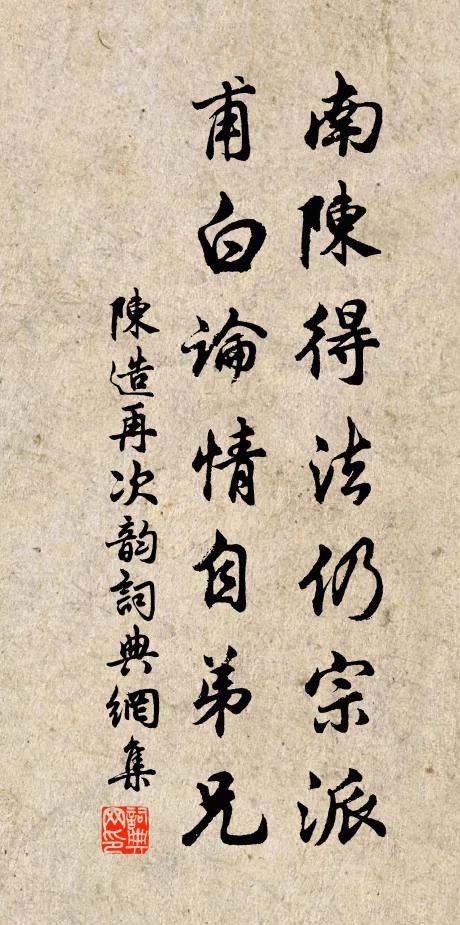 南陳得法仍宗派
甫白論情自弟兄
陳造再次韵詞典網集
詞典網印